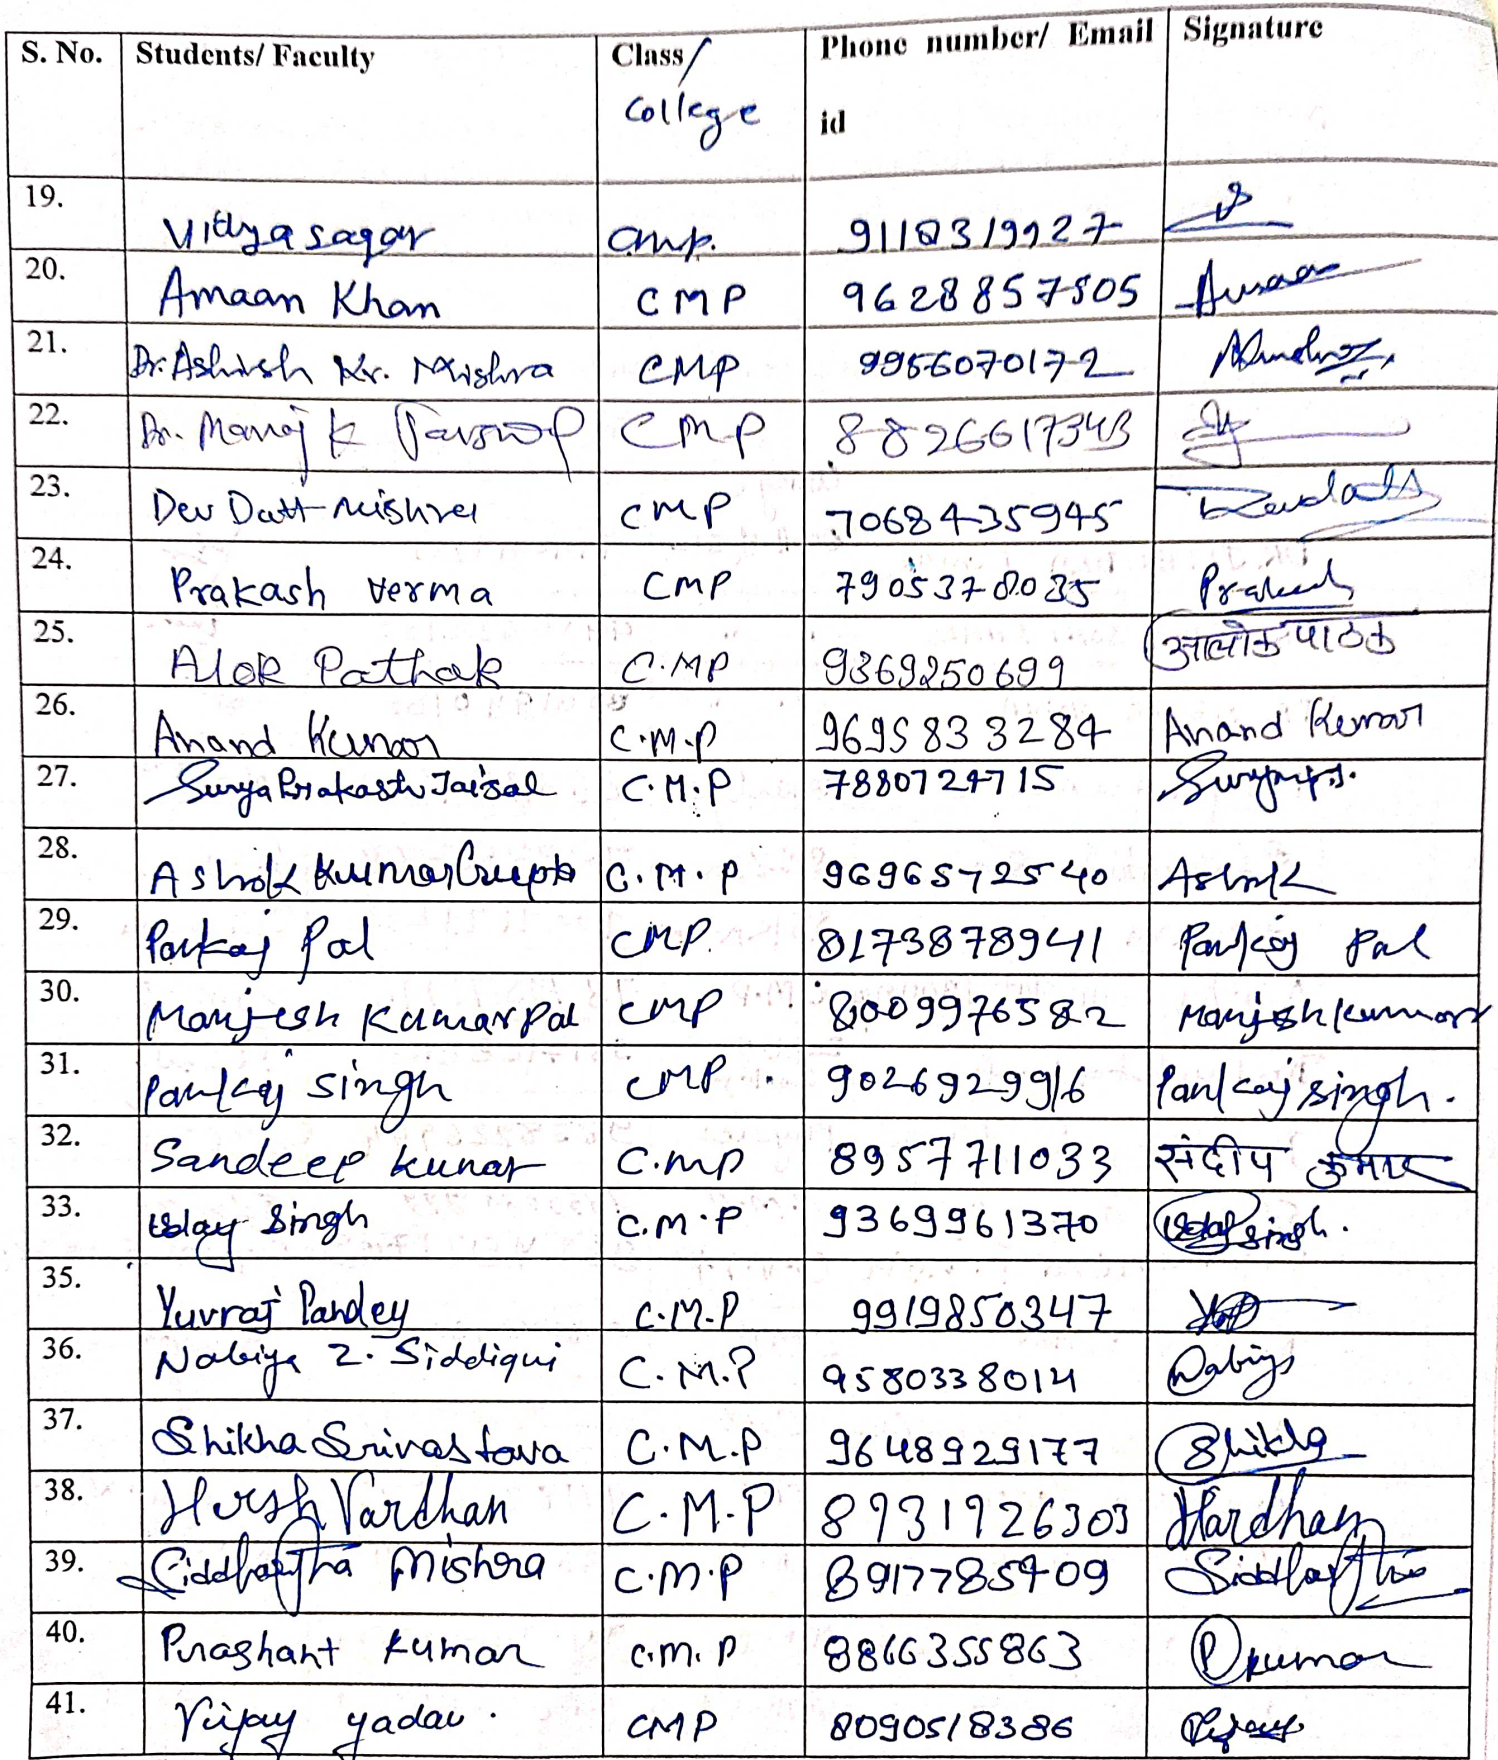 S. No. Students/ Faculty Class/ College Phone number/ Email id Signature
19. Vidyasagar CMP. 9118319927
20. Amaan Khan CMP 9628857505 Amaan
21. Dr. Ashish Kr. Mishra CMP 9956070172
22. Dr. Manoj K CMP 8826617343
23. Dev Datt Mishra CMP 7068435945 Devdatt
24. Prakash Verma CMP 7905378035 Prakash
25. Alok Pathak C.MP 9369250699 आलोक पाठक
26. Anand Kumar C.M.P 9695833284 Anand Kumar
27. Surya Prakash Jaisal C.M.P 7880724715
28. Ashok Kumar Gupta C.M.P 9696572540 Ashok
29. Pankaj Pal CMP. 8173878941 Pankaj Pal
30. Manjesh Kumar Pal CMP 8009976582 Manjesh Kumar
31. Pankaj Singh CMP. 9026929916 Pankaj Singh.
32. Sandeep Kunar C.MP 8957711033 संदीप कुमार
33. Uday Singh C.M.P 9369961370 Uday Singh.
35. Yuvraj Pandey C.M.P 9919850347
36. Nabiya Z. Siddiqui C.M.P 9580338014 Nabiya
37. Shikha Srivastava C.M.P 9648929177 Shikha
38. Harsh Vardhan C.M.P 8931926303
39. Siddhartha Mishra C.M.P 8917785409 Siddhartha
40. Prashant Kumar C.M.P 8866355863 P Kumar
41. Vijay yadav. CMP 8090518386